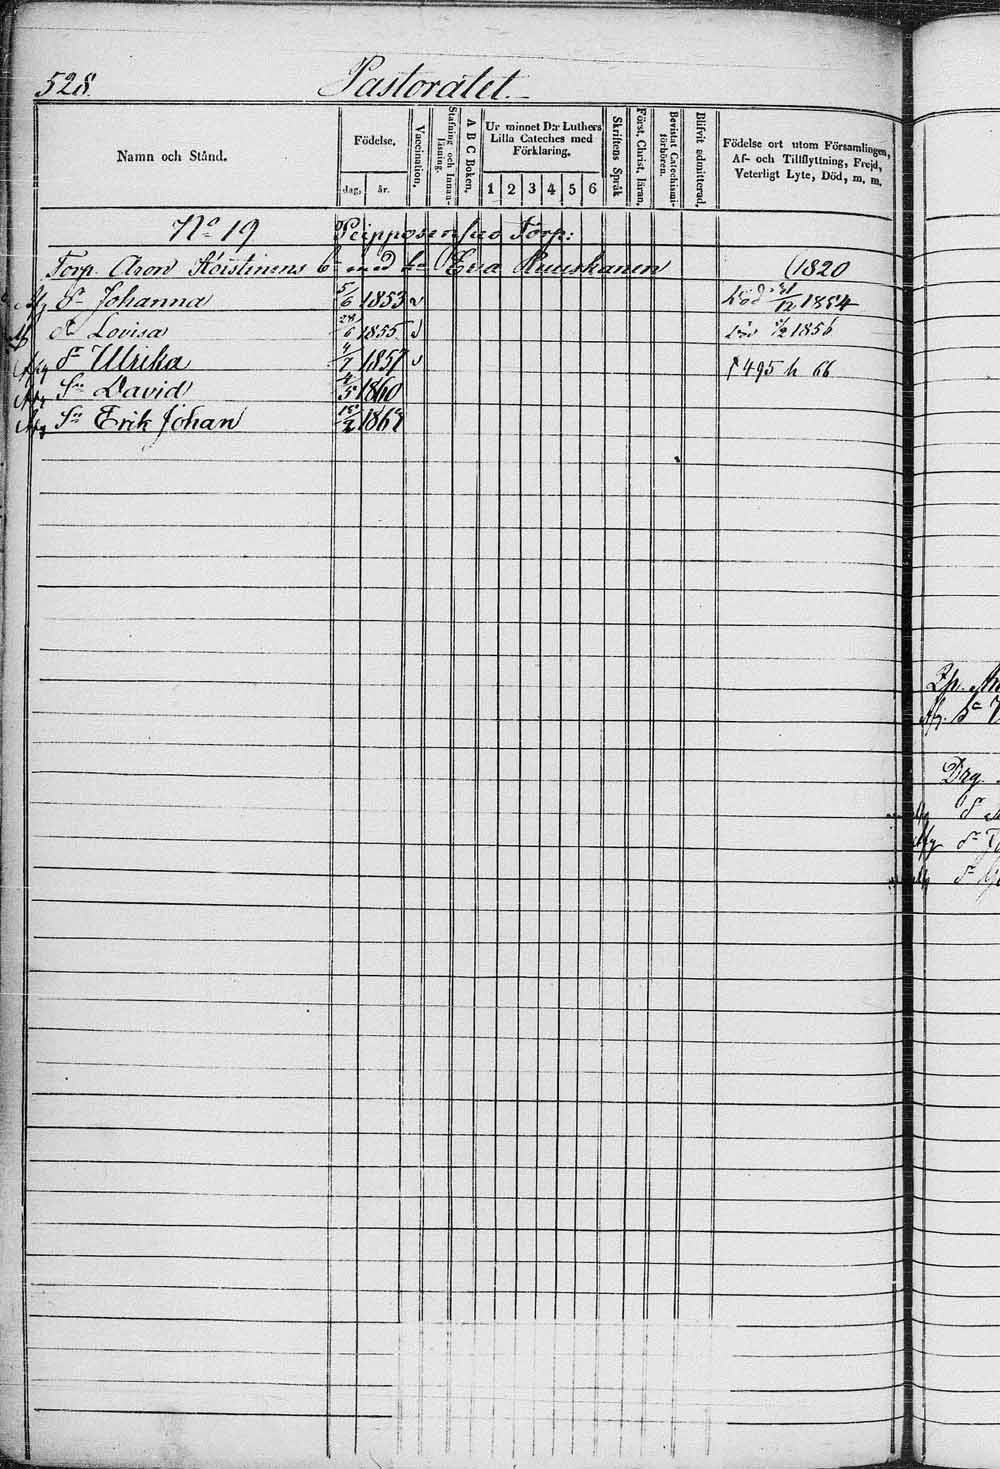 528.
Pastoratet.
Namn och Stånd.
Födelse.
dag.
år.
Vaccination.
Stafning och Innan-läsning.
A B C Boken.
Ur minnet D:r Luthers
Lilla Cateches med
Förklaring.
1 2 3 4 5 6
Skriftens Språk
Föret. Christ. läran.
Bevistat Catechismi-förhören.
Blifvit admitterad.
Födelse ort utom Församlingen,
Af- och Tillflyttning, Frejd,
Veterligt Lyte, Död, m. m.
No 19 Peipposensuo Torp:
Torp. Aron Köistinens med Eva Ruuskanen (1820
Dr Johanna 5/6 1853 v död 31/12 1854
Dr Lovisa 28/6 1855 1856
Dr Ulrika 4/7 1857 v 495 h 66
Sn David 4/5 1860
Sn Erik Johan
Drg.